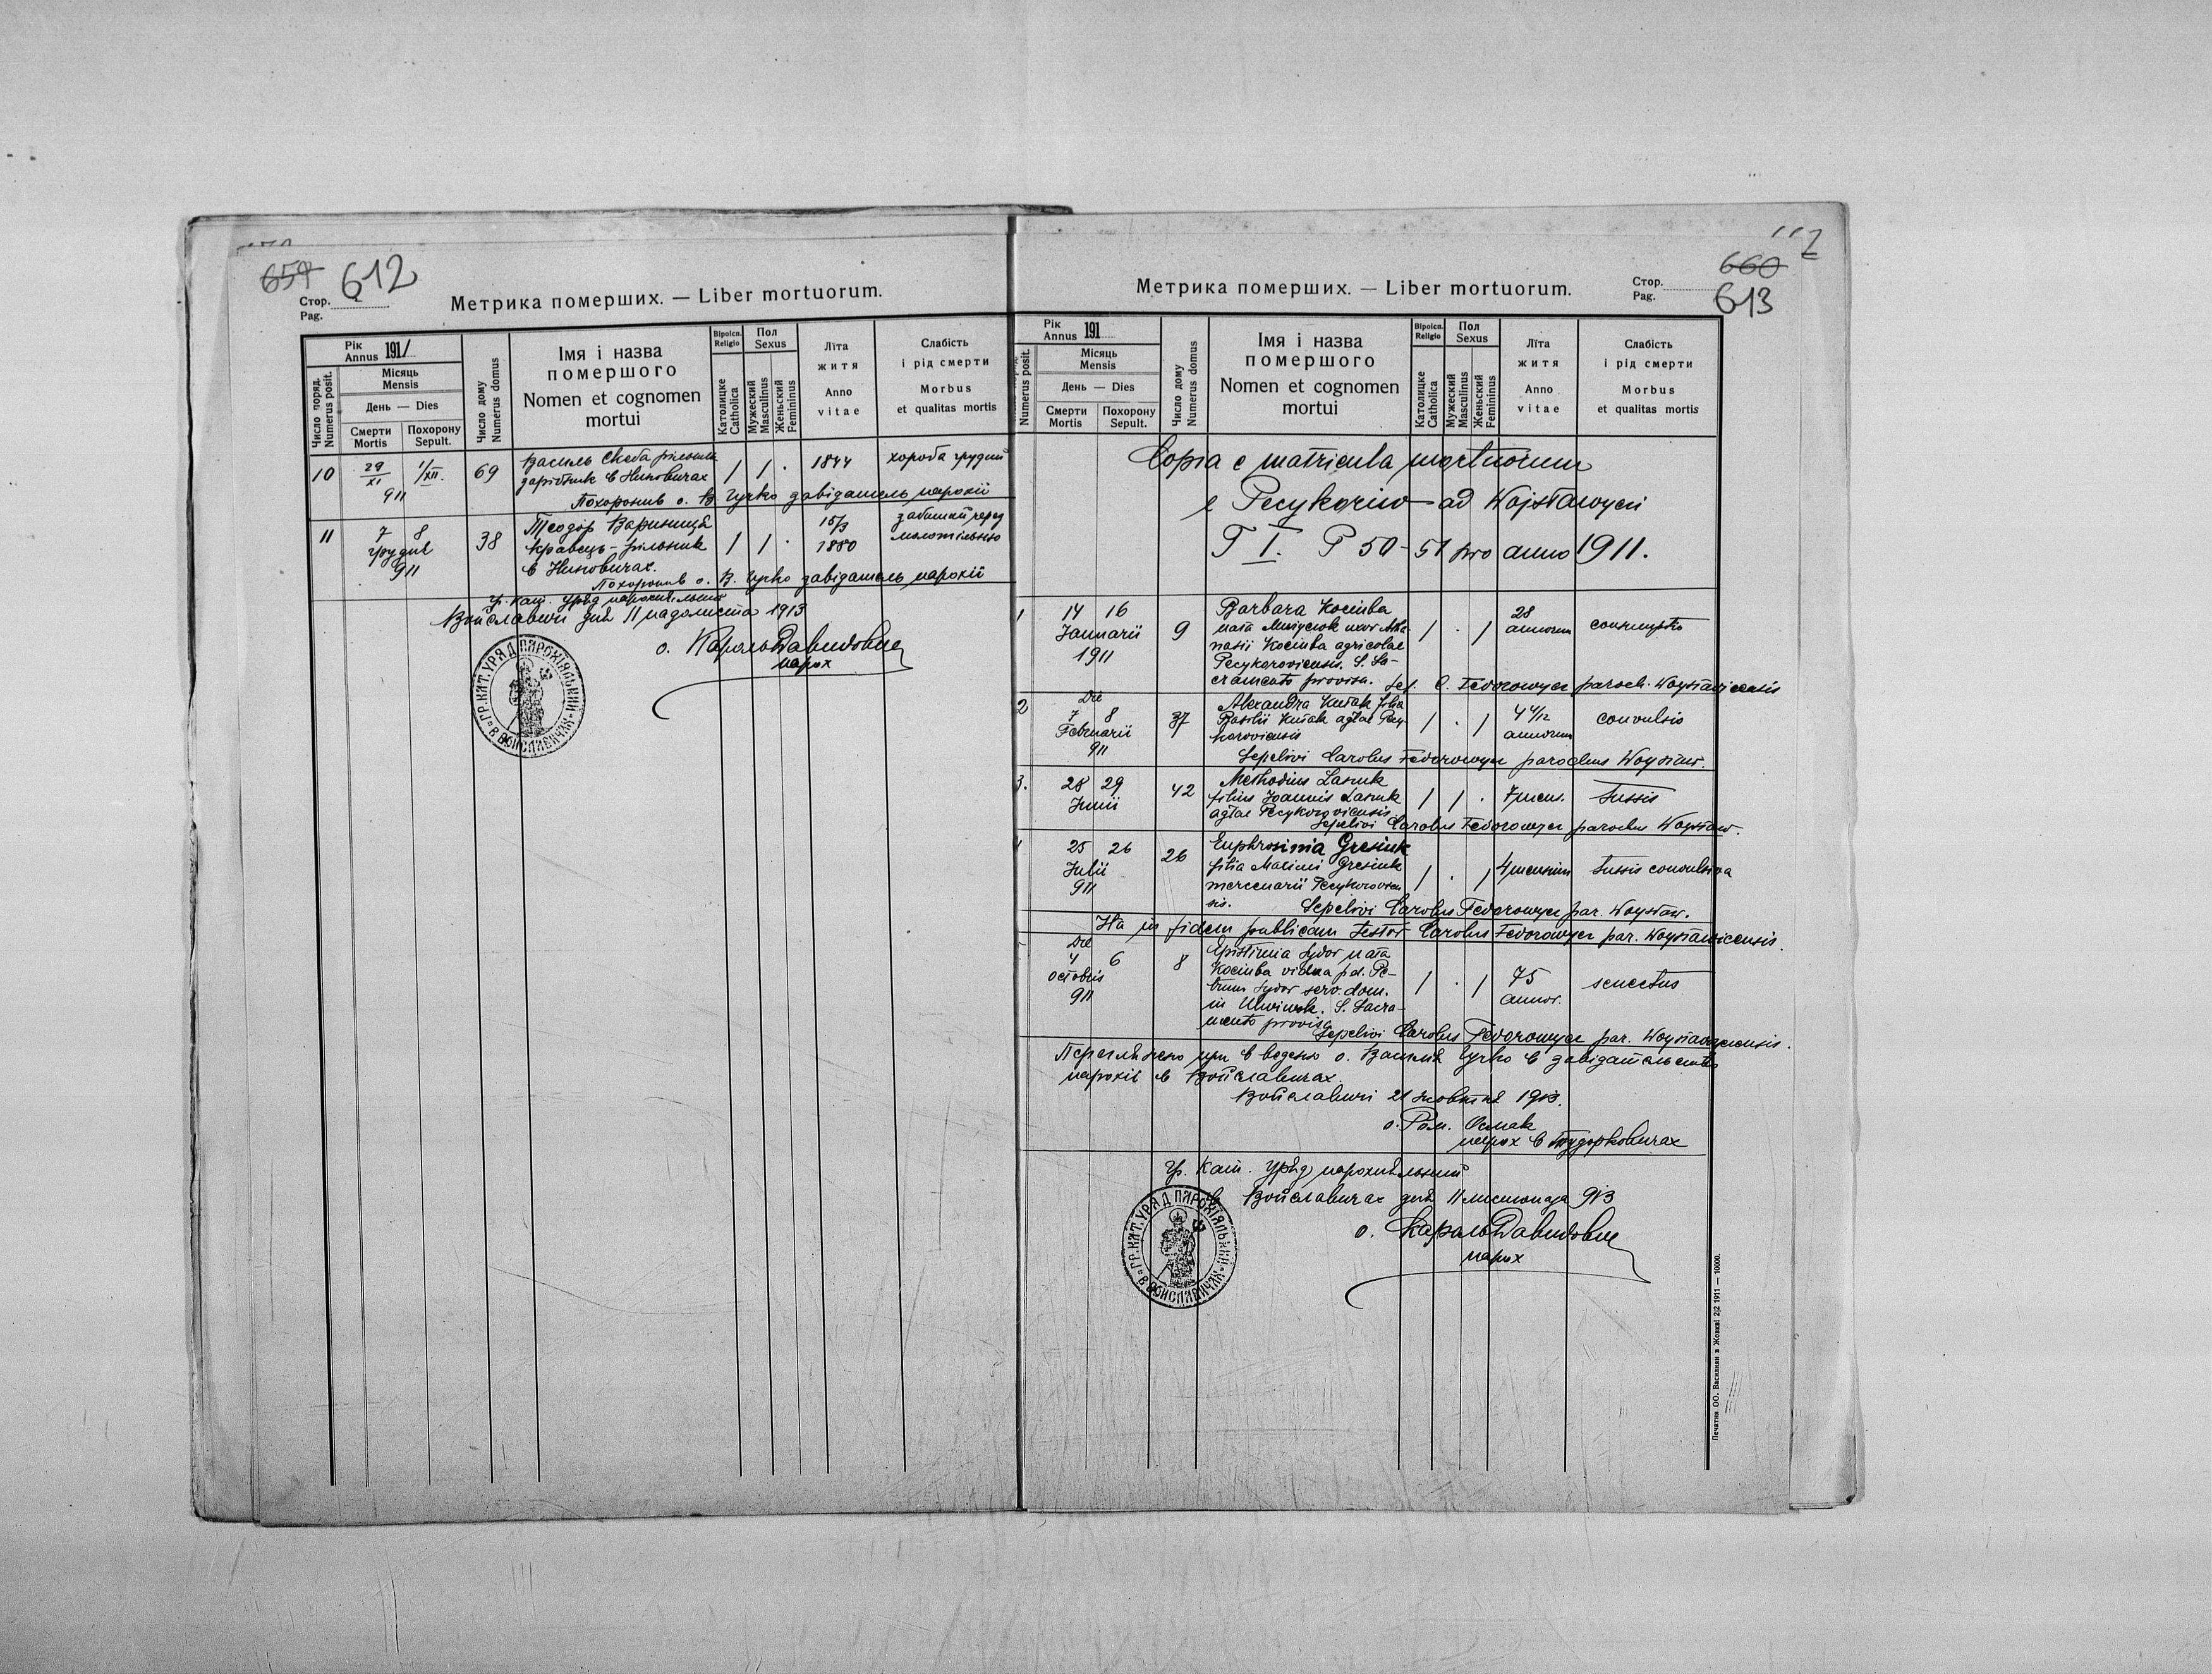 659 612
Стор.
Pag.
Метрика померших. — Liber mortuorum.
Рік
Annus 1911
Місяць
Mensis
День — Dies
Смерти
Mortis
Похорону
Sepult.
Число поряд.
Numerus posit.
Число дому
Numerus domus
Імя і назва
помершого
Nomen et cognomen
mortui
Віроісп.
Religio
Католицке
Catholica
Пол
Sexus
Мужеский
Masculinus
Женьский
Femininus
Літа
житя
Anno
vitae
Слабість
і рід смерти
Morbus
et qualitas mortis
10 29/XI 911 1/XII. 69 Василь рільник 1 1 . 1844 хороба грудий
зарібник в
Похоронив о. В. Чучко завідатель парохії
11 7 8 38 Теодор 1 1 . 15/3 забитий через
грудня кравець - рільник 1880
911 в
Похоронив о. В. завідатель парохії
Гр. кат. Уряд парохіяльний
Войславичі дня 11 падолиста 1913
о. Кароль Давидович
парох
ГР.КАТ.УРЯД ПАРОХІЯЛЬНИЙ В ВОЙСЛАВИЧАХ
Метрика померших. — Liber mortuorum.
Стор.
Pag.
660
613
Рік
Annus 191
Місяць
Mensis
День — Dies
Смерти
Mortis
Похорону
Sepult.
Numerus posit.
Число дому
Numerus domus
Імя і назва
помершого
Nomen et cognomen
mortui
Віроісп.
Religio
Католицке
Catholica
Пол
Sexus
Мужеский
Masculinus
Женьский
Femininus
Літа
житя
Anno
vitae
Слабість
і рід смерти
Morbus
et qualitas mortis
Copia e matricula mortuorum
e Pecykoriw ad Wojsławyci
T I. P 50-51 pro anno 1911.
1 14 16 9 Barbara Kociuba 1 . 1 28
Januarii nata uxor Atha- annorum
1911 nasii Kociuba agricolae
Pecykoroviensis. S. Sa-
cramento provisa. Sep. C. Fedorowycz paroch.
2 Die
7 8 37 Alexandra filia 1 . 1 4 4/12 convulsio
Februarii Basilii agłae Pecy- annorum
911 koroviensis
Sepelivi Carolus Fedorowycz parochus Woysław.
3. 28 29 42 Methodius Lasiuk 1 1 . 7 mens. tussis
Junii filius Joannis Lasiuk
agłae Pecykoroviensis
Sepelivi Carolus Fedorowycz parochus Woysław.
25 26 26 Euphrosinia Gresiuk 1 . 1 4 mensium tussis convulsiva
Julii filia Maximi Gresiuk
911 mercenarii Pecykorovien
sis. Sepelivi Carolus Fedorowycz par. Woysław.
Ita in fidem publicam testor Carolus Fedorowycz par. Woysławicensis.
Die
4 6 8 Epistimia Sydor nata 1 . 1 75 senectus
octobris Kociuba vidua p.d. Pe- annor.
911 trum Sydor serv. dom.
in S. Sacra-
mento provisa
Sepelivi Carolus Fedorowycz par.
Переглянено при введеню о. Василя Чучко в завідательство
парохії в Войславичах.
Войславичі 21 жовтня 1913.
о. Ром. Осмак
парох в Тудорковичах
Гр. Кат. Уряд парохіяльний
в Войславичах дня 11 листопада 913
о. Кароль Давидович
парох
ГР.КАТ.УРЯД ПАРОХІЯЛЬНИЙ В ВОЙСЛАВИЧАХ
Печатня ОО. Василиян в Жовкві 2|2 1911 — 10000.